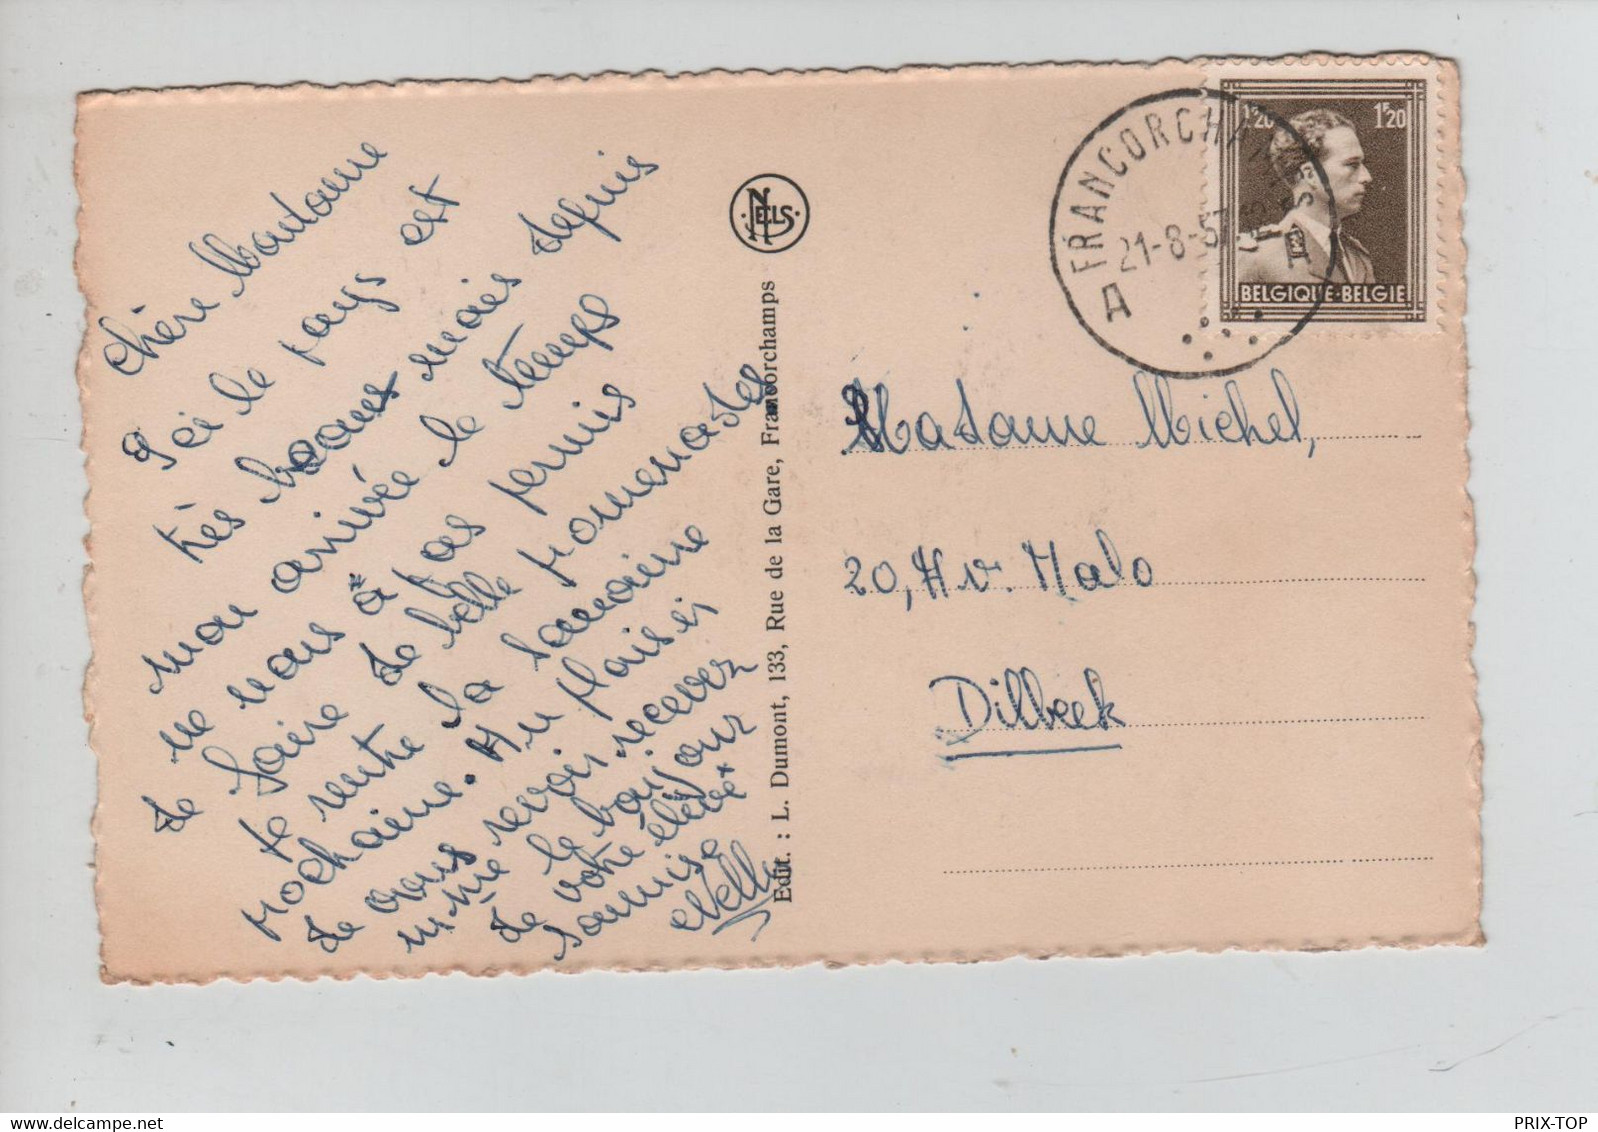 Chère Madame
Ici le pays est
très beau mais depuis
mon arrivée le temps
ne nous a pas permis
de faire de belle promenades
je rentre la semaine
prochaine. Au plaisir
de vous revoir, recevez
le bonjour
de votre élève
soumise
Nelly
NELS
Edit. : L. Dumont, 133, Rue de la Gare, Francorchamps
FRANCORCHAMPS
21-8-57
A
1F20
1F20
BELGIQUE·BELGIE
Madame Michel,
20, Av. Malo
Dilbeek
PRIX-TOP